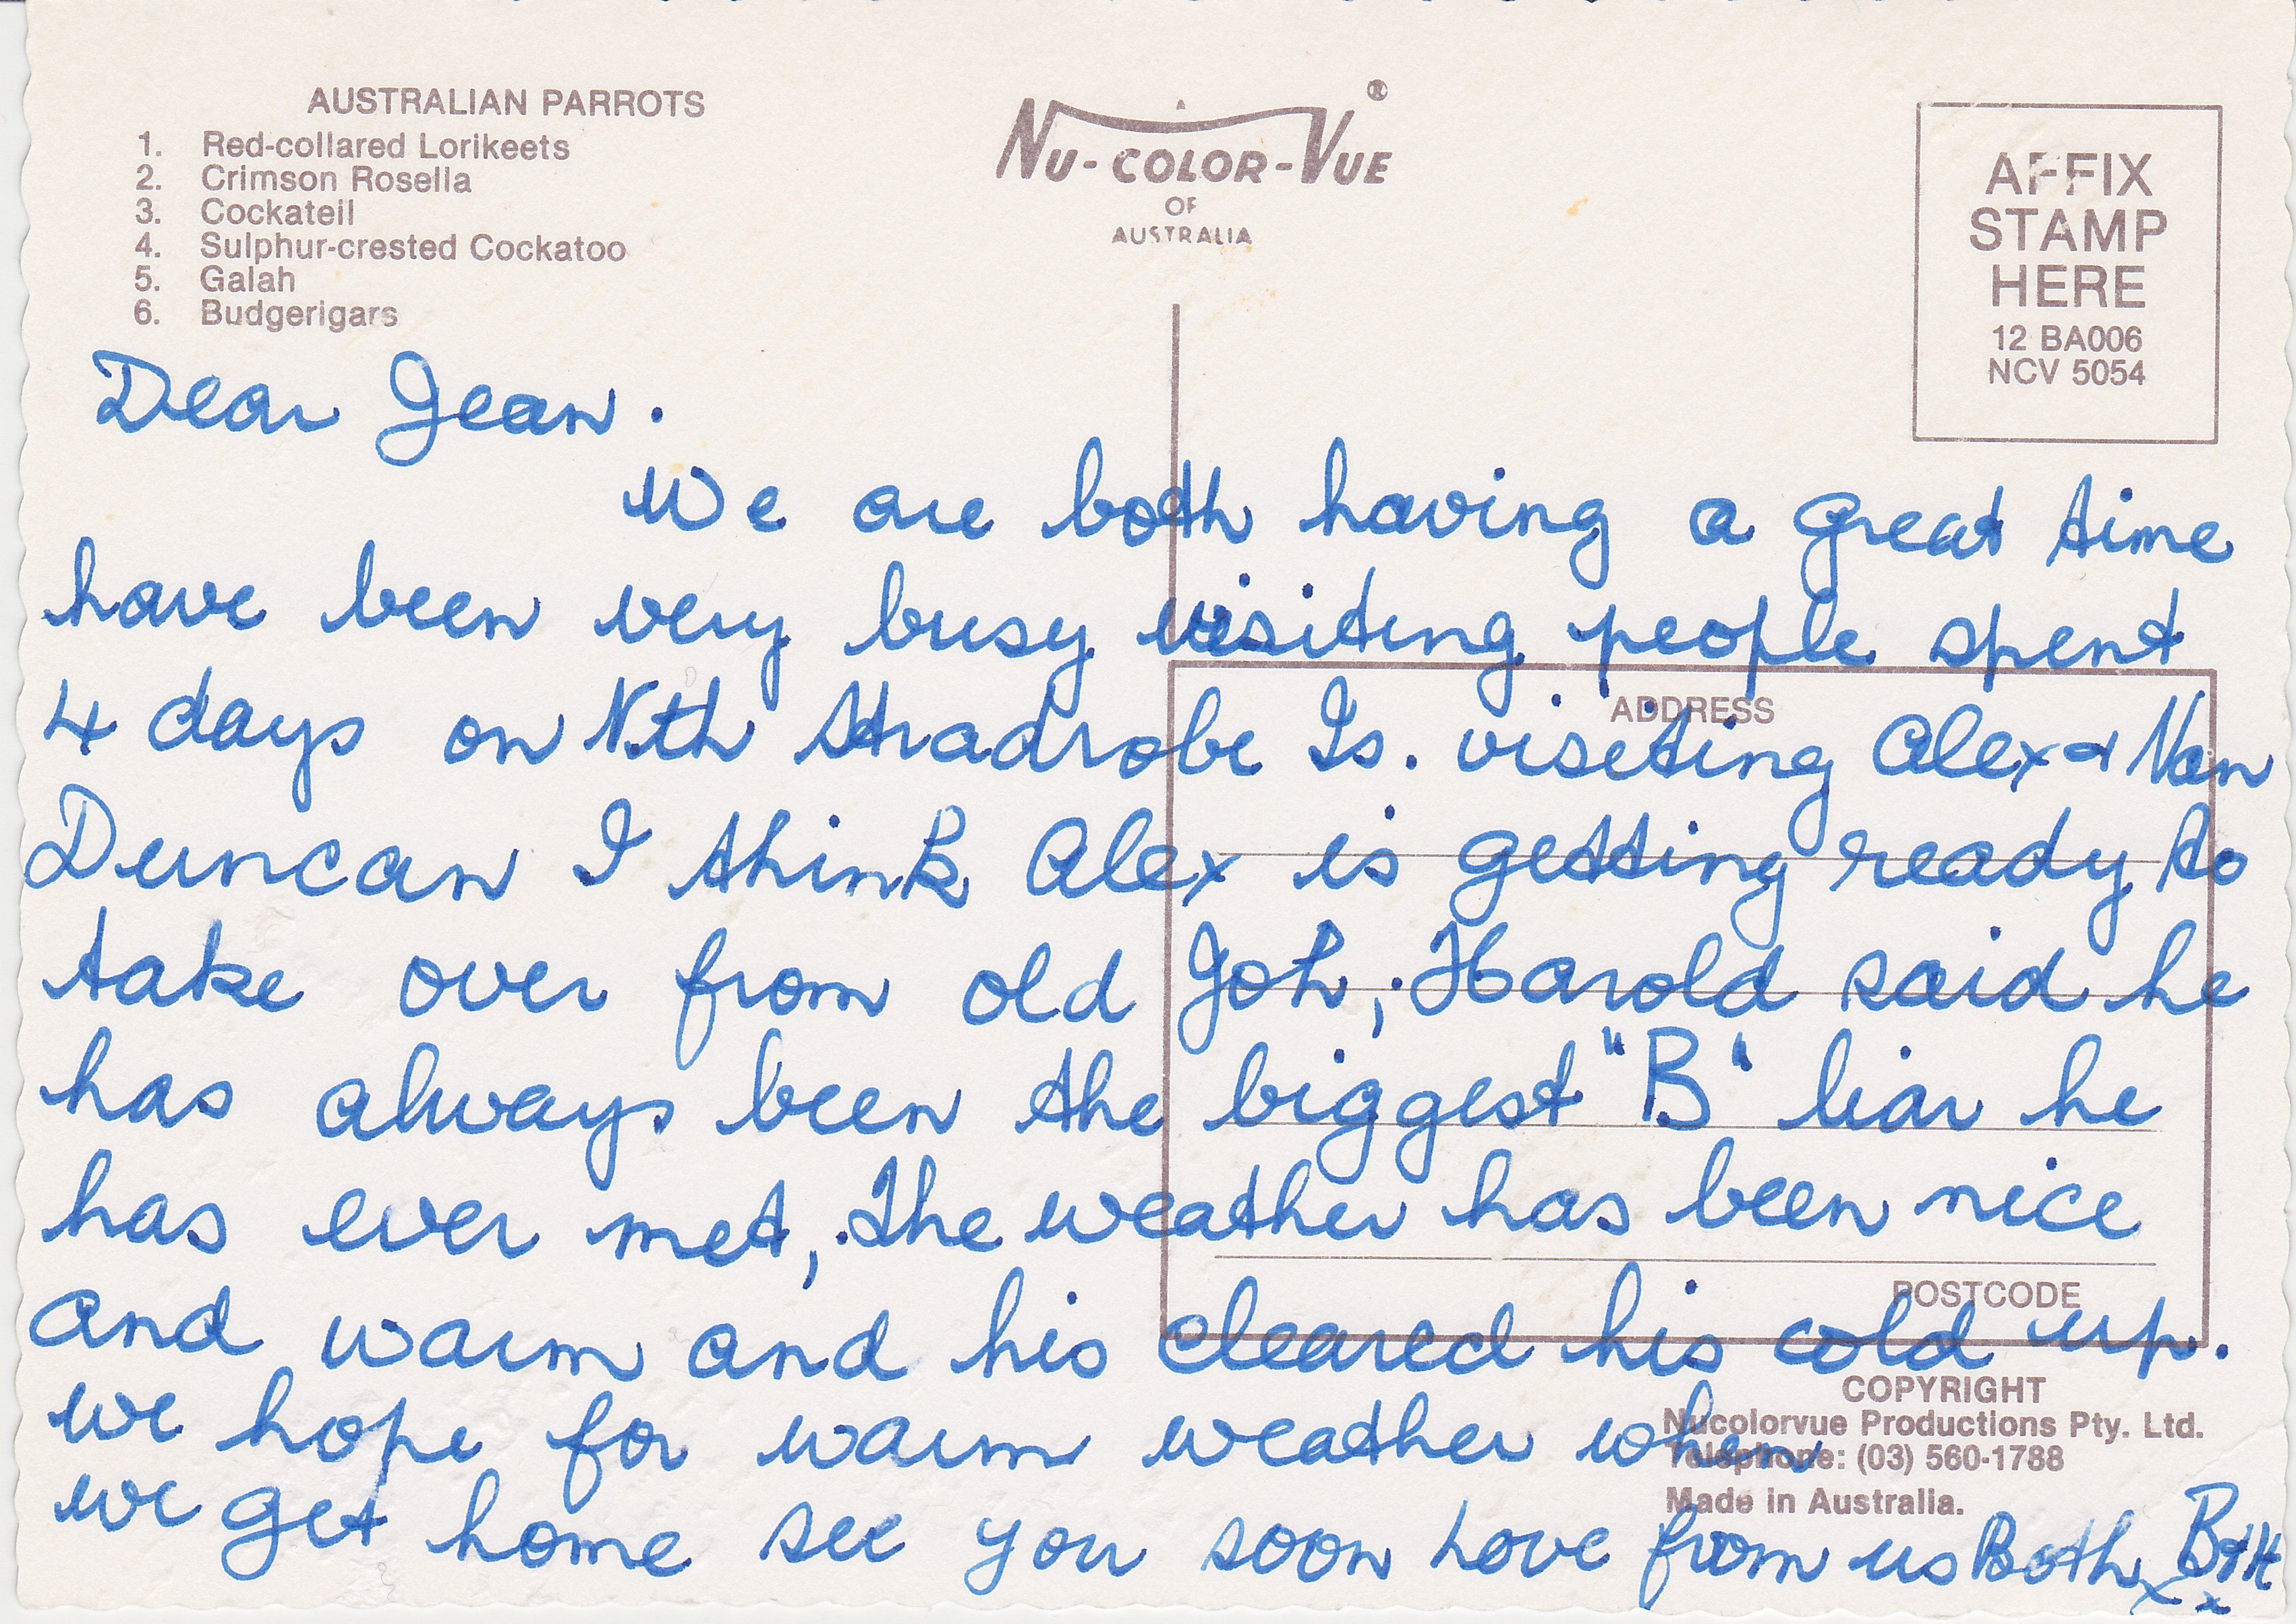 AUSTRALIAN PARROTS
1. Red-collared Lorikeets
2. Crimson Rosella
3. Cockateil
4. Sulphur-crested Cockatoo
5. Galah
6. Budgerigars
NU-COLOR-VUE ®
OF
AUSTRALIA
AFFIX
STAMP
HERE
12 BA006
NCV 5054
Dear Jean.
We are both having a great time
have been very busy visiting people spent
4 days on Nth Stradrobe Is. visiting Alex & Nan
Duncan I think Alex is getting ready to
take over from old Joh, Harold said he
has always been the biggest "B" liar he
has ever met, The weather has been nice
and warm and his cleared his cold up.
we hope for warm weather when
we get home see you soon Love from us Both B+H
x x
ADDRESS
POSTCODE
COPYRIGHT
Nucolorvue Productions Pty. Ltd.
Telephone: (03) 560-1788
Made in Australia.